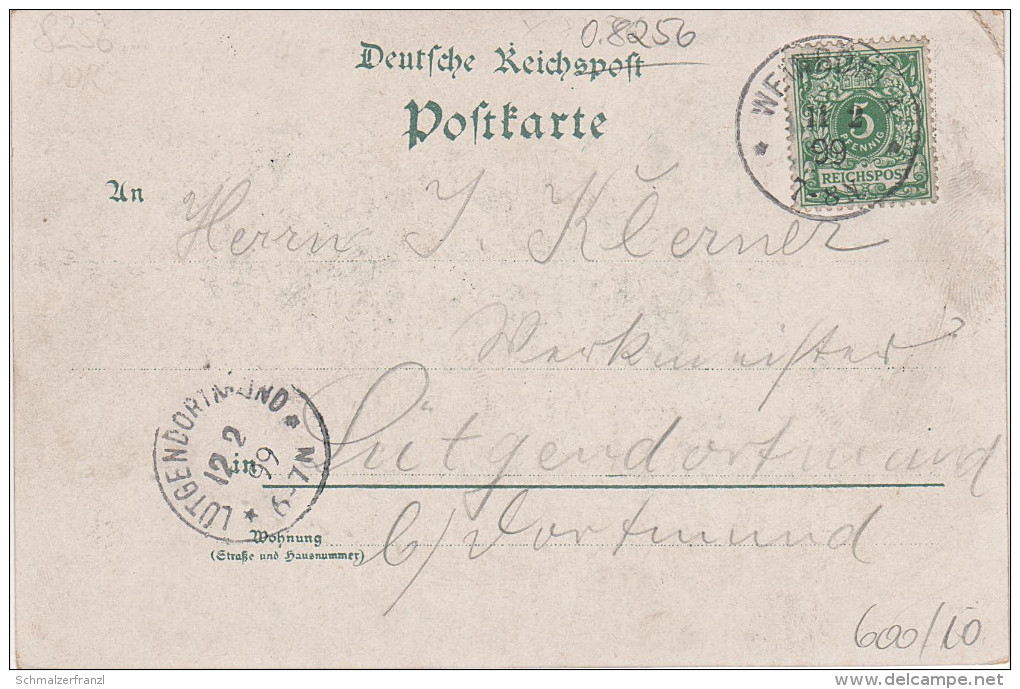 8256
DDR
0.8256
Deutsche Reichspost
Postkarte
5
PFENNIG
REICHSPOST
11 2
99
7-8N
An
Herrn J. Klerner
Werkmeister
in Lütgendortmund
b/Dortmund
LÜTGENDORTMUND
12 2
99
6-7N
Wohnung
(Straße und Hausnummer)
600/10
Schmalzerfranzl
delcampe.net